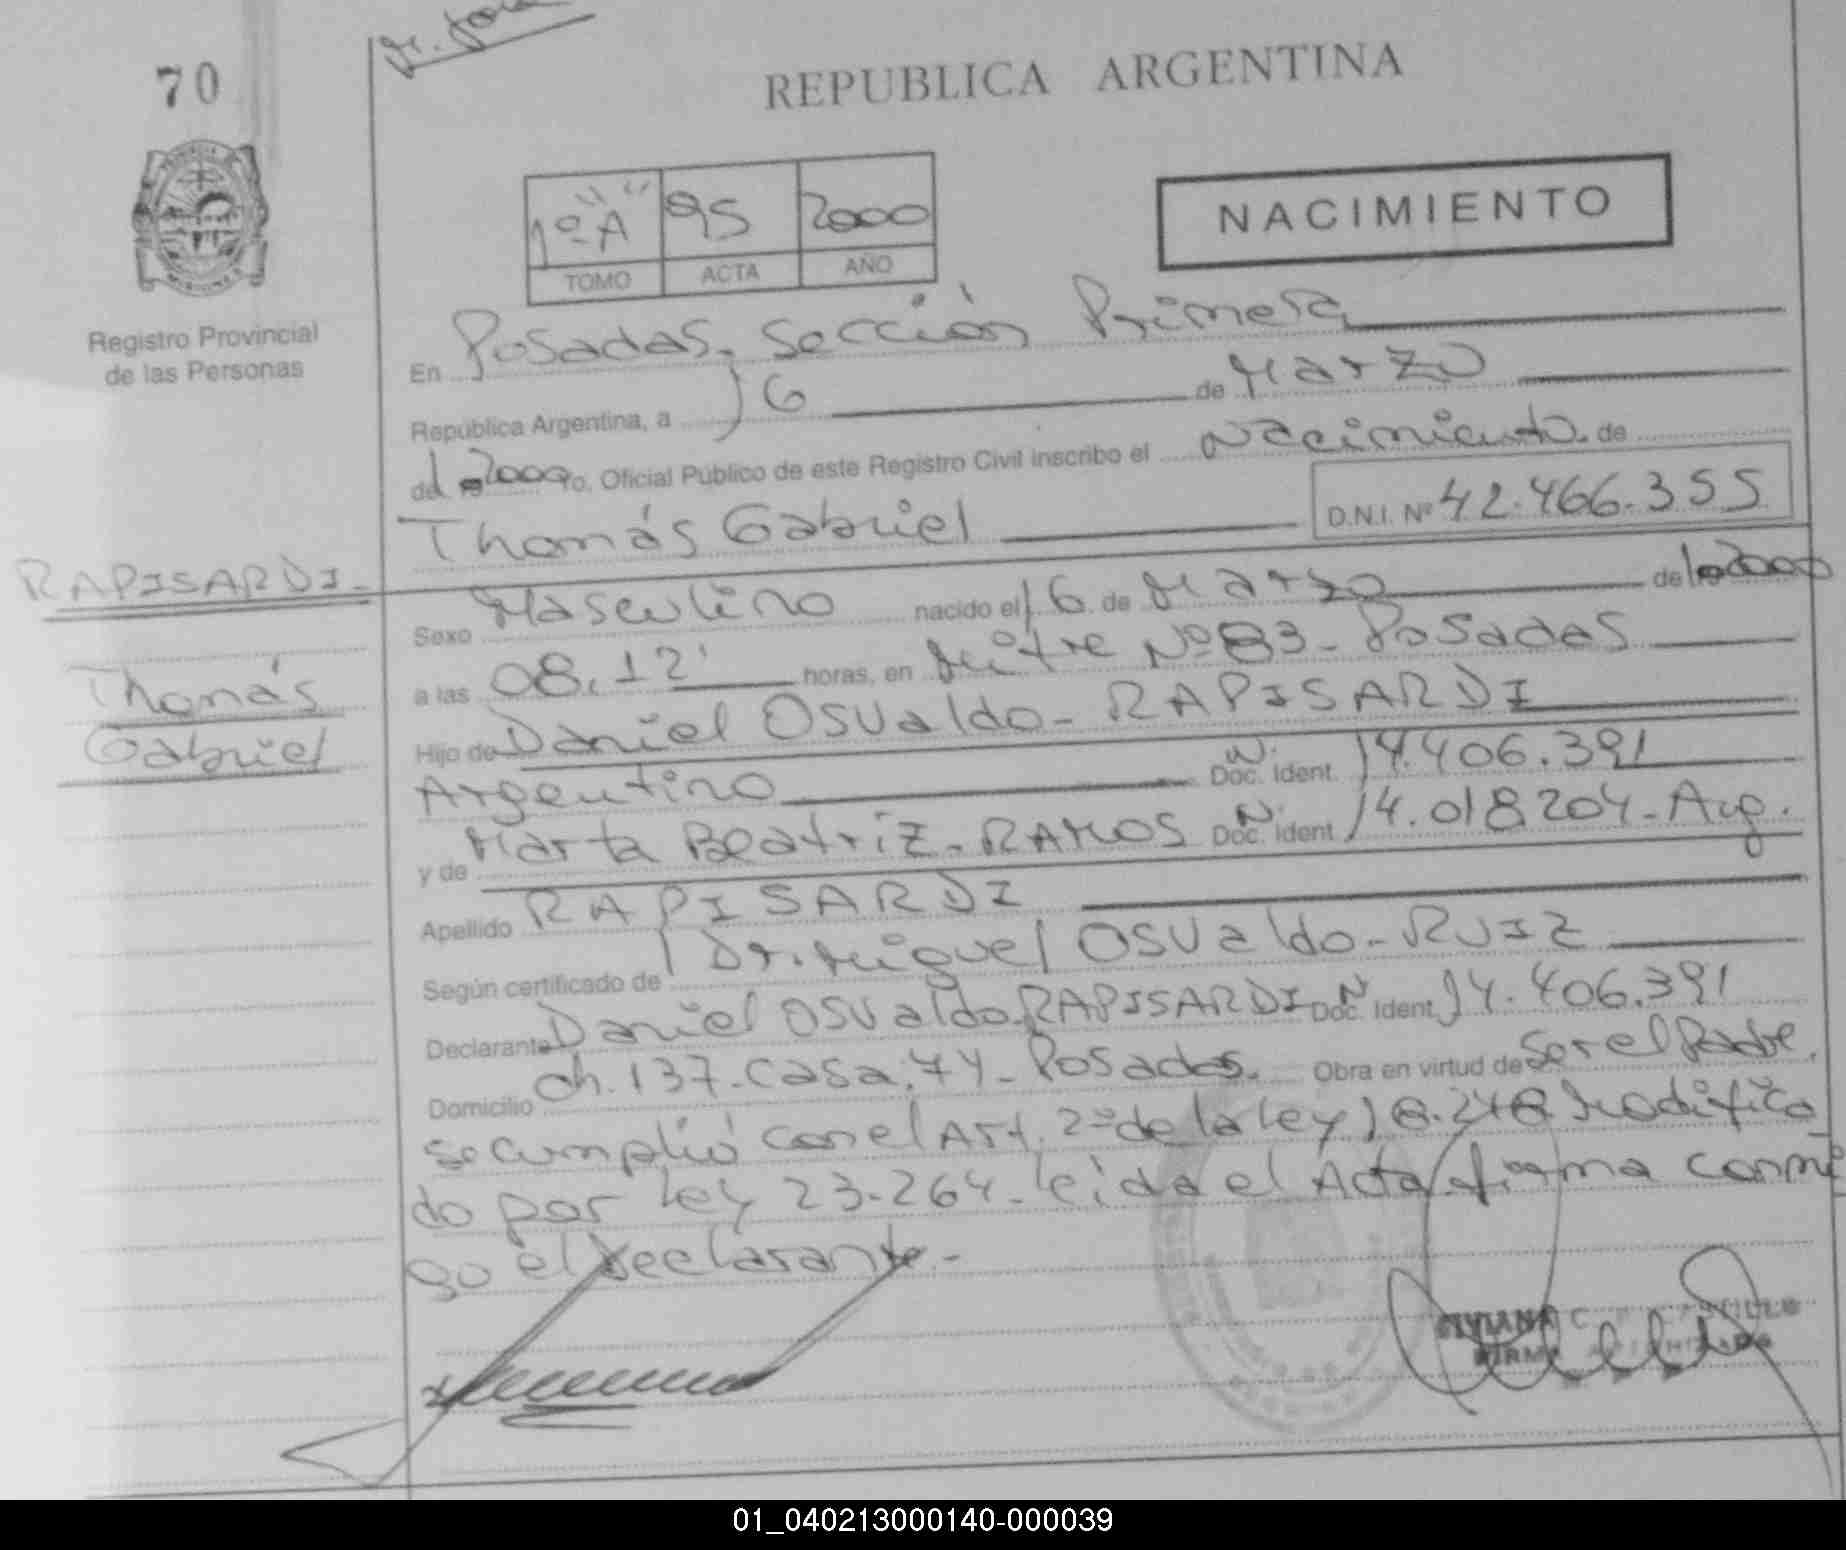 70
REPUBLICA ARGENTINA
1º "A" 95 2000
TOMO ACTA AÑO
NACIMIENTO
Registro Provincial
de las Personas
En Posadas, Sección Primera
República Argentina, a 16 de Marzo
del 2000 Yo, Oficial Público de este Registro Civil inscribo el Nacimiento de
Thomás Gabriel D.N.I. Nº 42.466.355
RAPISARDI-
Thomás
Gabriel
Sexo Masculino nacido el 16 de Marzo de 2000
a las 08,12' horas, en Mitre Nº 83- Posadas
Hijo de Daniel Osvaldo- RAPISARDI
Argentino N. Doc. Ident. 14.406.391
y de Marta Beatriz- RAMOS N. Doc. Ident 14.018204- Arg.
Apellido RAPISARDI
Según certificado de Dr. Miguel Osvaldo- RUIZ
Declarante Daniel Osvaldo RAPISARDI N Doc. Ident 14.406.391
Domicilio Ch. 137- Casa. 74- Posadas. Obra en virtud de Ser el Padre.
se cumplió con el Art. 2º de la Ley 18.248 Modifica
do por Ley 23.264- leida el Acta firma conmi
go el Declarante-
01_040213000140-000039